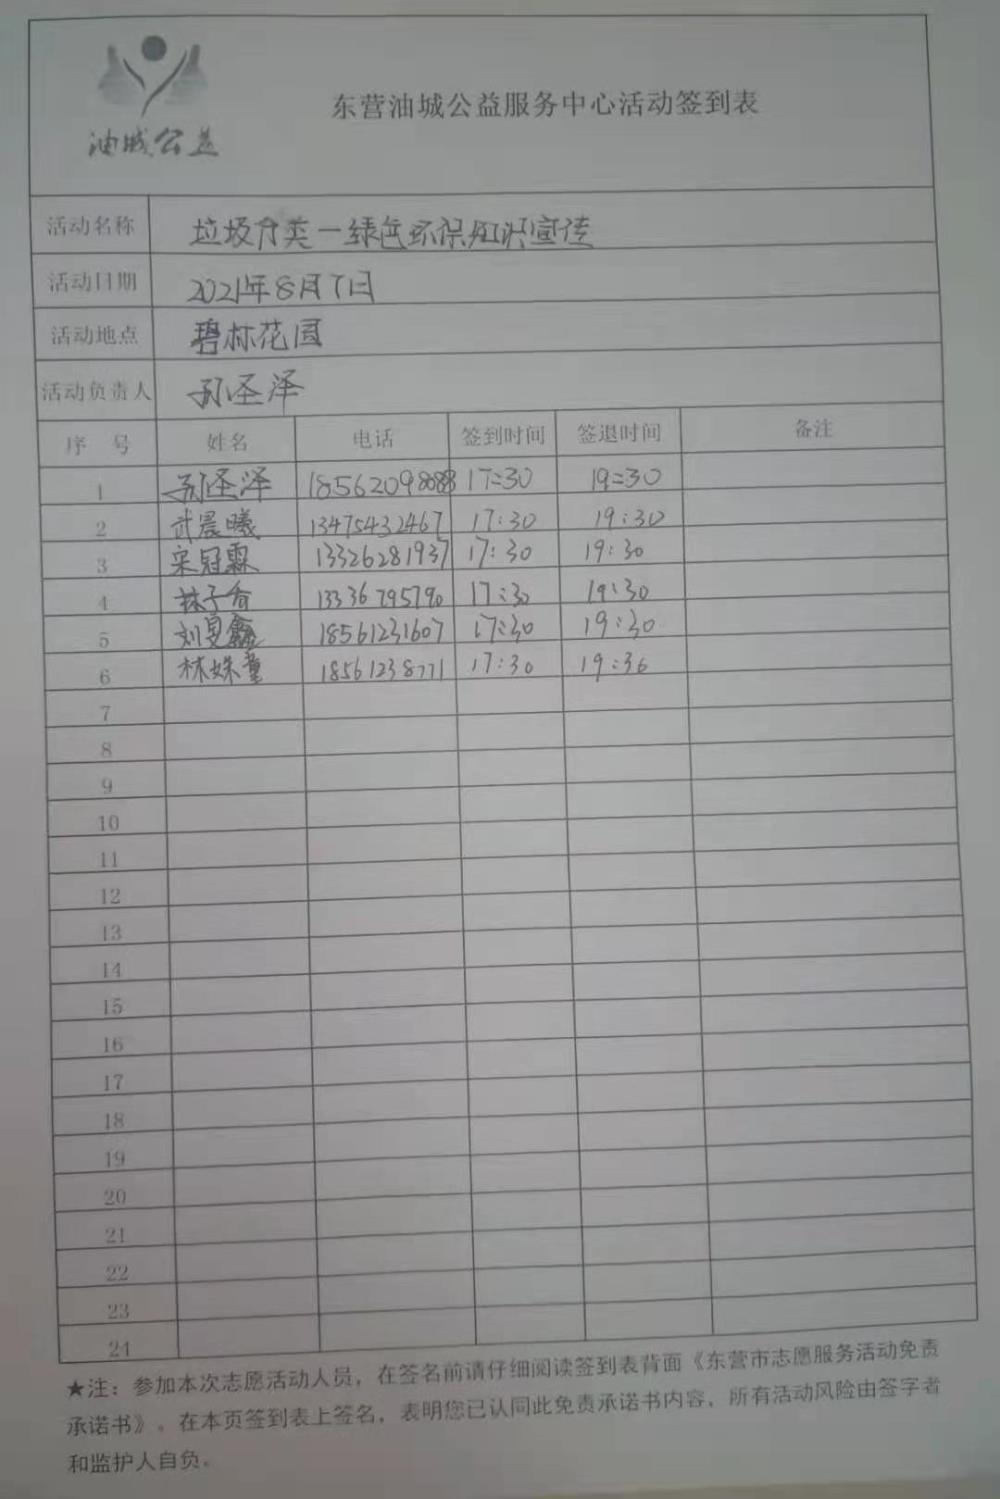 油城公益
东营油城公益服务中心活动签到表
活动名称 垃圾分类一绿色环保知识宣传
活动日期 2021年8月7日
活动地点 碧林花园
活动负责人 孙圣泽
序 号 姓名 电话 签到时间 签退时间 备注
1 孙圣泽 17:30 19:30
2 武晨曦 13475432467 17:30 19:30
3 宋冠霖 13326281937 17:30 19:30
4 林子香 13336795790 17:30 19:30
5 刘昱鑫 18561231607 17:30 19:30
6 林姝童 18561238771 17:30 19:30
7
8
9
10
11
12
13
14
15
16
17
18
19
20
21
22
23
24
★注：参加本次志愿活动人员，在签名前请仔细阅读签到表背面《东营市志愿服务活动免责
承诺书》。在本页签到表上签名，表明您已认同此免责承诺书内容，所有活动风险由签字者
和监护人自负。